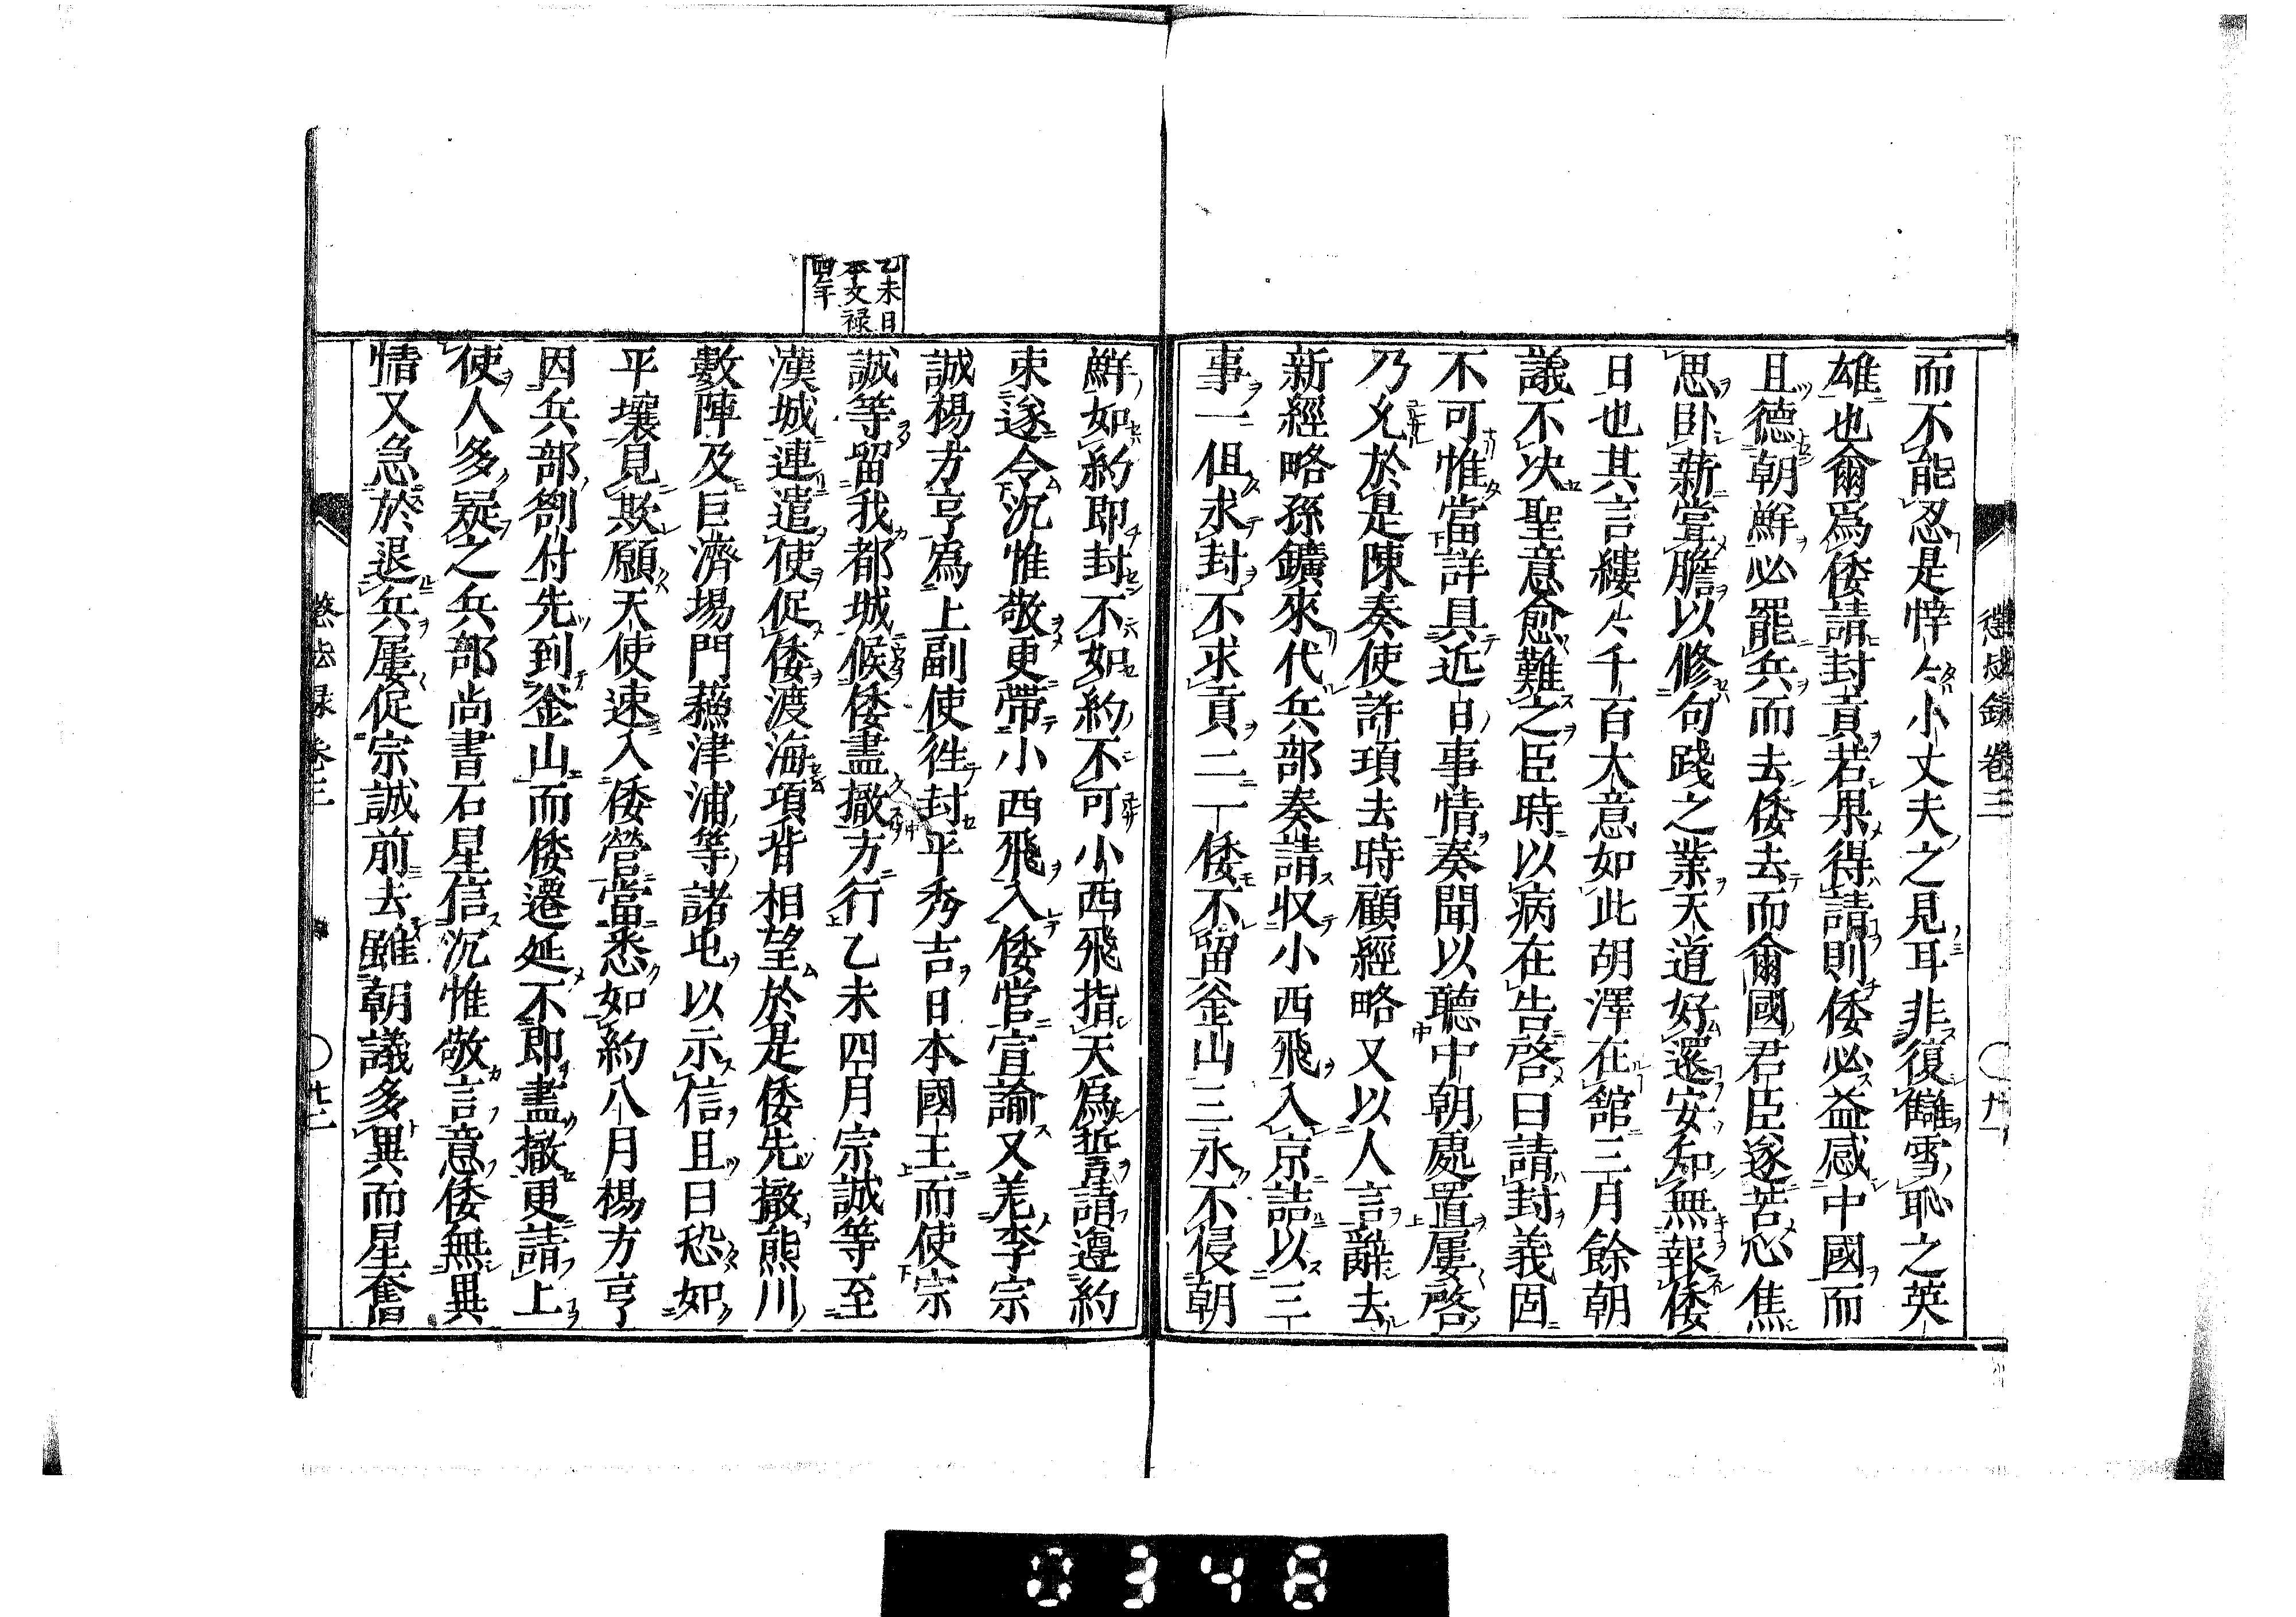 懲毖録卷三
而不能忍是悻々小丈夫之見耳非復讎雪恥之英
雄也爾爲倭請封貢若果得請則倭必益感中國而
且德朝鮮必罷兵而去倭去而爾國君臣遂苦心焦
思卧薪嘗膽以修句踐之業天道好還安知無報倭
日也其言縷々千百大意如此胡澤在館三月餘朝
議不决聖意愈難之臣時以病在告啓曰請封義固
不可惟當詳具近日事情奏聞以聽中朝處置屢啓
乃允於是陳奏使許頊去時顧經略又以人言辭去
新經略孫鑛來代兵部奏請収小西飛入京詰以三
事一但求封不求貢二一倭不留釜山三永不侵朝
鮮如約即封不如約不可小西飛指天爲誓請遵約
束遂令沉惟敬更帶小西飛入倭營宣諭又差李宗
誠楊方亨爲上副使徃封平秀吉日本國王而使宗
誠等留我都城候倭盡撤方行乙未四月宗誠等至
漢城連遣使促倭渡海項背相望於是倭先撤熊川
數陣及巨濟場門蘓津浦等諸屯以示信且曰恐如
平壤見欺願天使速入倭營當悉如約八月楊方亨
因兵部劄付先到釜山而倭遷延不即盡撤更請上
使人多疑之兵部尚書石星信沉惟敬言意倭無異
情又急於退兵屢促宗誠前去雖朝議多異而星奮
乙未日
本文禄
四年